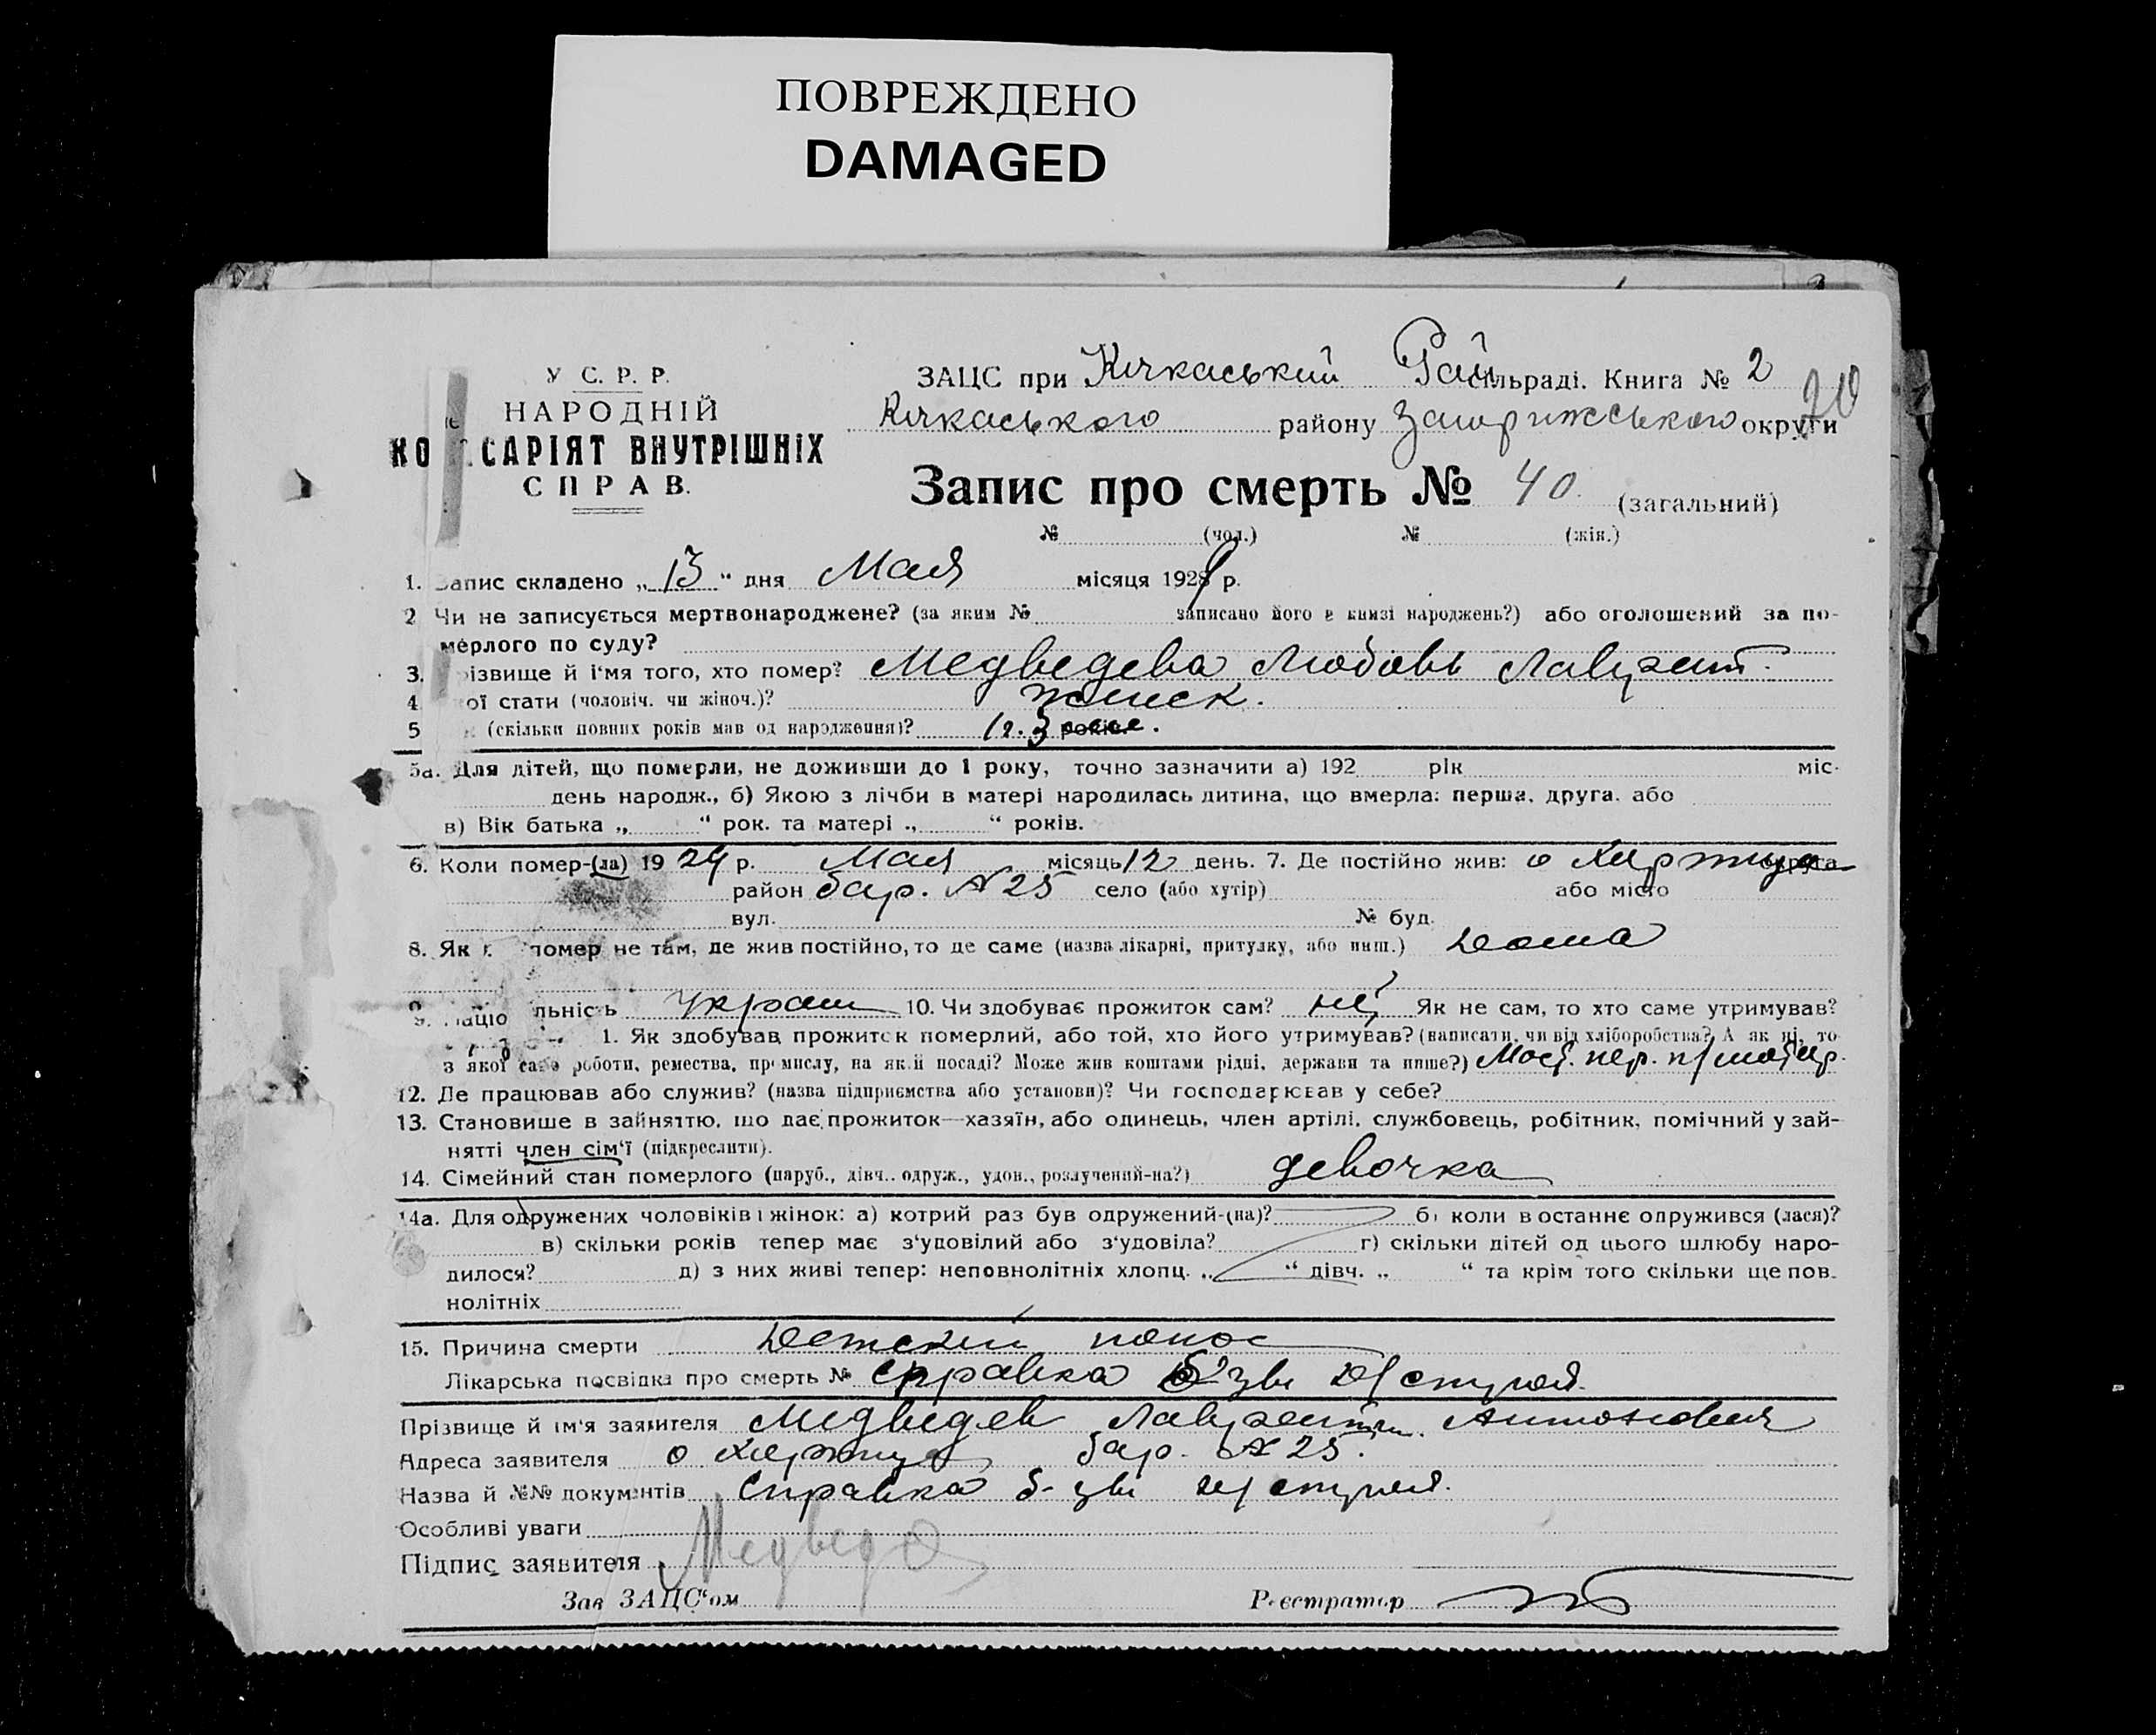 ПОВРЕЖДЕНО
DAMAGED
У С. Р. Р.
НАРОДНІЙ
КО САРІЯТ ВНУТРІШНІХ
СПРАВ.
ЗАЦС при Кичкаський Рай сільраді. Книга № 2
20
Кичкаського району Запорижського округи
Запис про смерть № 40 (загальний)
№ (чол.) № (жін.)
1. Запис складено „13“ дня Мая місяця 1929 р.
2 Чи не записується мертвонароджене? (за яким № записано його в книзі народжень?) або оголошений за по-
мерлого по суду?
3. різвище й і'мя того, хто помер? Медведева Любовь Лаврент.
4 ої стати (чоловіч. чи жіноч.)? женск.
5 к (скільки повних років мав од народження)? 1г. 3 мес.
5а. Для дітей, що померли, не доживши до 1 року, точно зазначити а) 192 рік міс.
день народж., б) Якою з лічби в матері народилась дитина, що вмерла: перша, друга, або
в) Вік батька „ “ рок. та матері „ “ років.
6. Коли помер-(ла) 19 29 р. Мая місяць 12 день. 7. Де постійно жив: о Хортица округа
район бар. № 25 село (або хутір) або місто
вул. № буд.
8. Як помер не там, де жив постійно, то де саме (назва лікарні, притулку, або инш.) дома
9. Націо льність Украин 10. Чи здобуває прожиток сам? нет Як не сам, то хто саме утримував?
1. Як здобував прожиток померлий, або той, хто його утримував? (написати, чи від хліборобства? А як ні, то
з якої саме роботи, ремества, промислу, на якій посаді? Може жив коштами рідні, держави та инше?) Мост. пер.
12. Де працював або служив? (назва підприємства або установи)? Чи господарював у себе?
13. Становише в зайняттю, що дає прожиток—хазяїн, або одинець, член артілі, службовець, робітник, помічний у зай-
нятті член сім'ї (підкреслити).
14. Сімейний стан померлого (паруб., дівч., одруж., удов., розлучений-на?) девочка
14а. Для одружених чоловіків і жінок: а) котрий раз був одружений-(на)? б) коли востаннє одружився (лася)?
в) скільки років тепер має з'удовілий або з'удовіла? г) скільки дітей од цього шлюбу наро-
дилося? д) з них живі тепер: неповнолітніх хлопц. „ “ дівч. „ “ та крім того скільки ще пов.
нолітніх
15. Причина смерти Детский понос
Лікарська посвідка про смерть № Справка
Прізвище й ім'я заявителя Медведев Лаврентий Антонович
Адреса заявителя о Хортица бар. № 25.
Назва й №№ документів Справка
Особливі уваги
Підпис заявителя Медведев
Зав ЗАЦС'ом Реєстратор